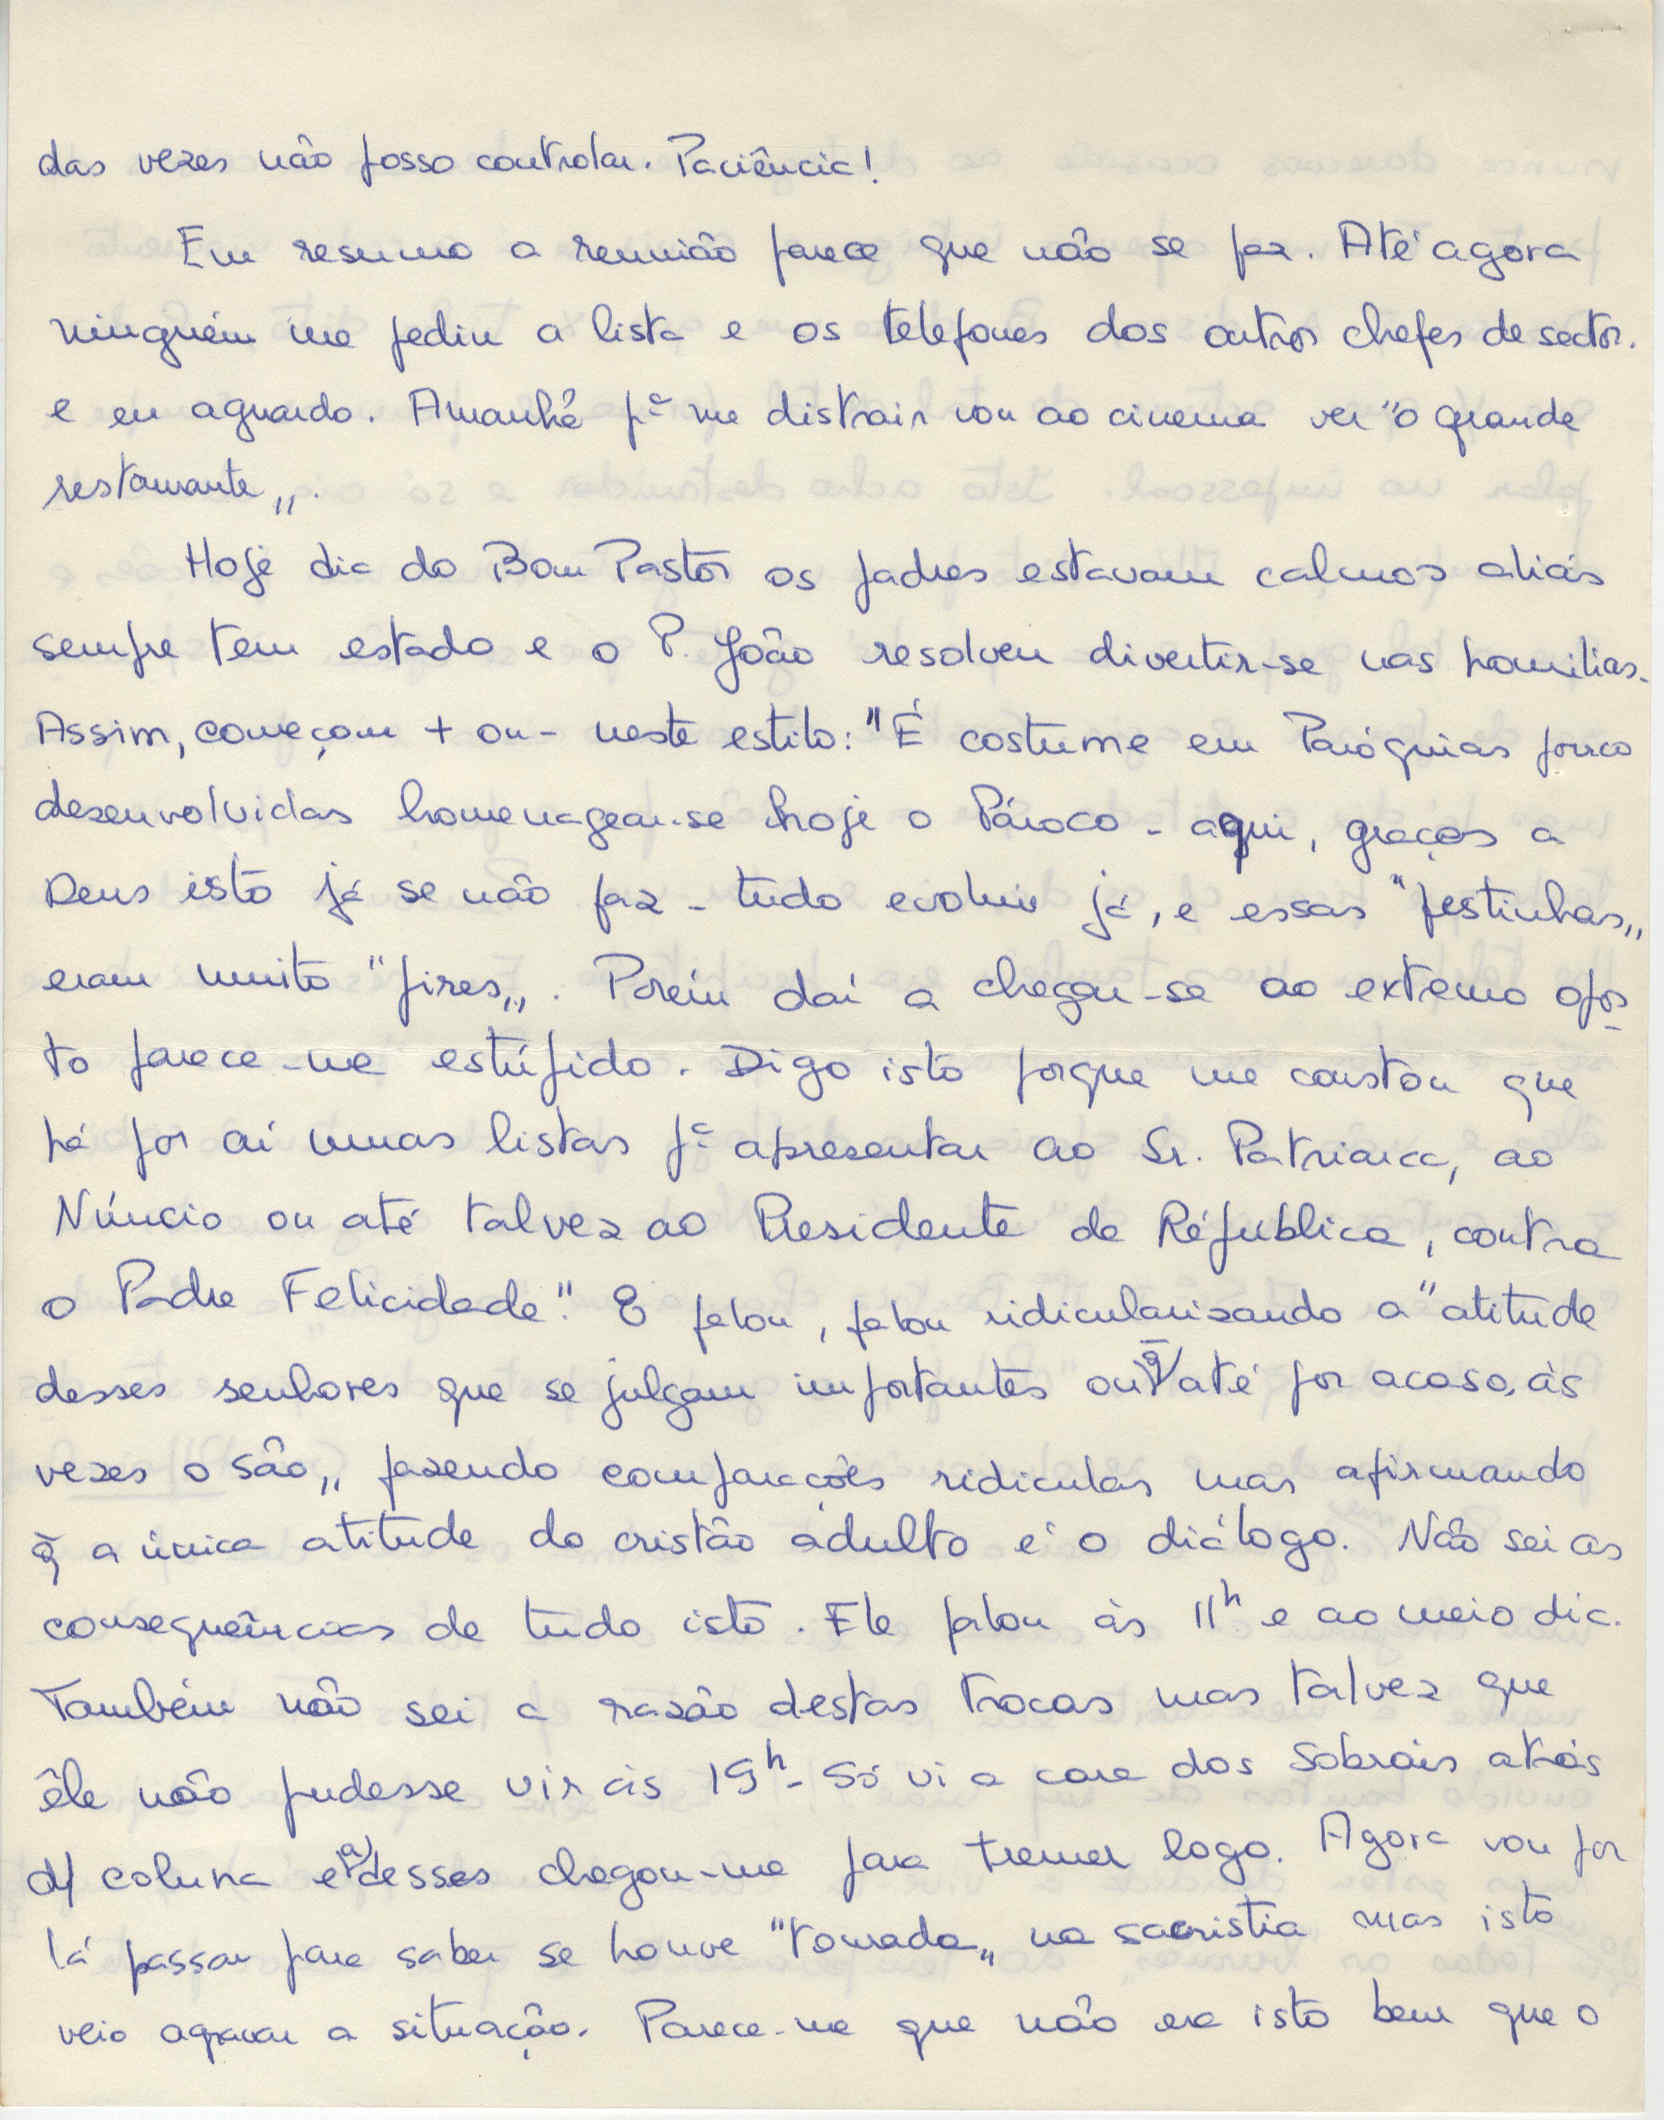 das vezes não posso controlar. Paciência!
Em resumo a reunião parece que não se faz. Até agora
ninguém me pediu a lista e os telefones dos outros chefes de sector.
e eu aguardo. Amanhã pª me distrair vou ao cinema ver "o grande
restaurante".
Hoje dia do Bom Pastor os padres estavam calmos aliás
sempre tem estado e o P. João resolveu divertir-se nas homilias.
Assim, começou + ou - neste estilo: "É costume em Paróquias pouco
desenvolvidas homenagear-se hoje o Pároco - aqui, graças a
Deus isto já se não faz - tudo evoluiu já, e essas "festinhas"
eram muito "pires". Porém daí a chegar-se ao extremo opos-
to parece-me estúpido. Digo isto porque me constou que
há por aí umas listas pª apresentar ao Sr. Patriarca, ao
Núncio ou até talvez ao Presidente da República, contra
o Padre Felicidade". E falou, falou ridicularizando a "atitude
desses senhores que se julgam importantes ou q̃ até por acaso, às
vezes o são" fazendo comparações ridiculas mas afirmando
q̃ a única atitude do cristão adulto é o diálogo. Não sei as
consequências de tudo isto. Ele falou às 11h e ao meio dia.
Também não sei a razão destas trocas mas talvez que
êle não pudesse vir às 19h - Só vi a cara dos Sobrais atrás
d/ coluna e a desses chegou-me para tremer logo. Agora vou por
lá passar para saber se houve "tourada" na sacristia mas isto
veio agravar a situação. Parece-me que não era isto bem que o